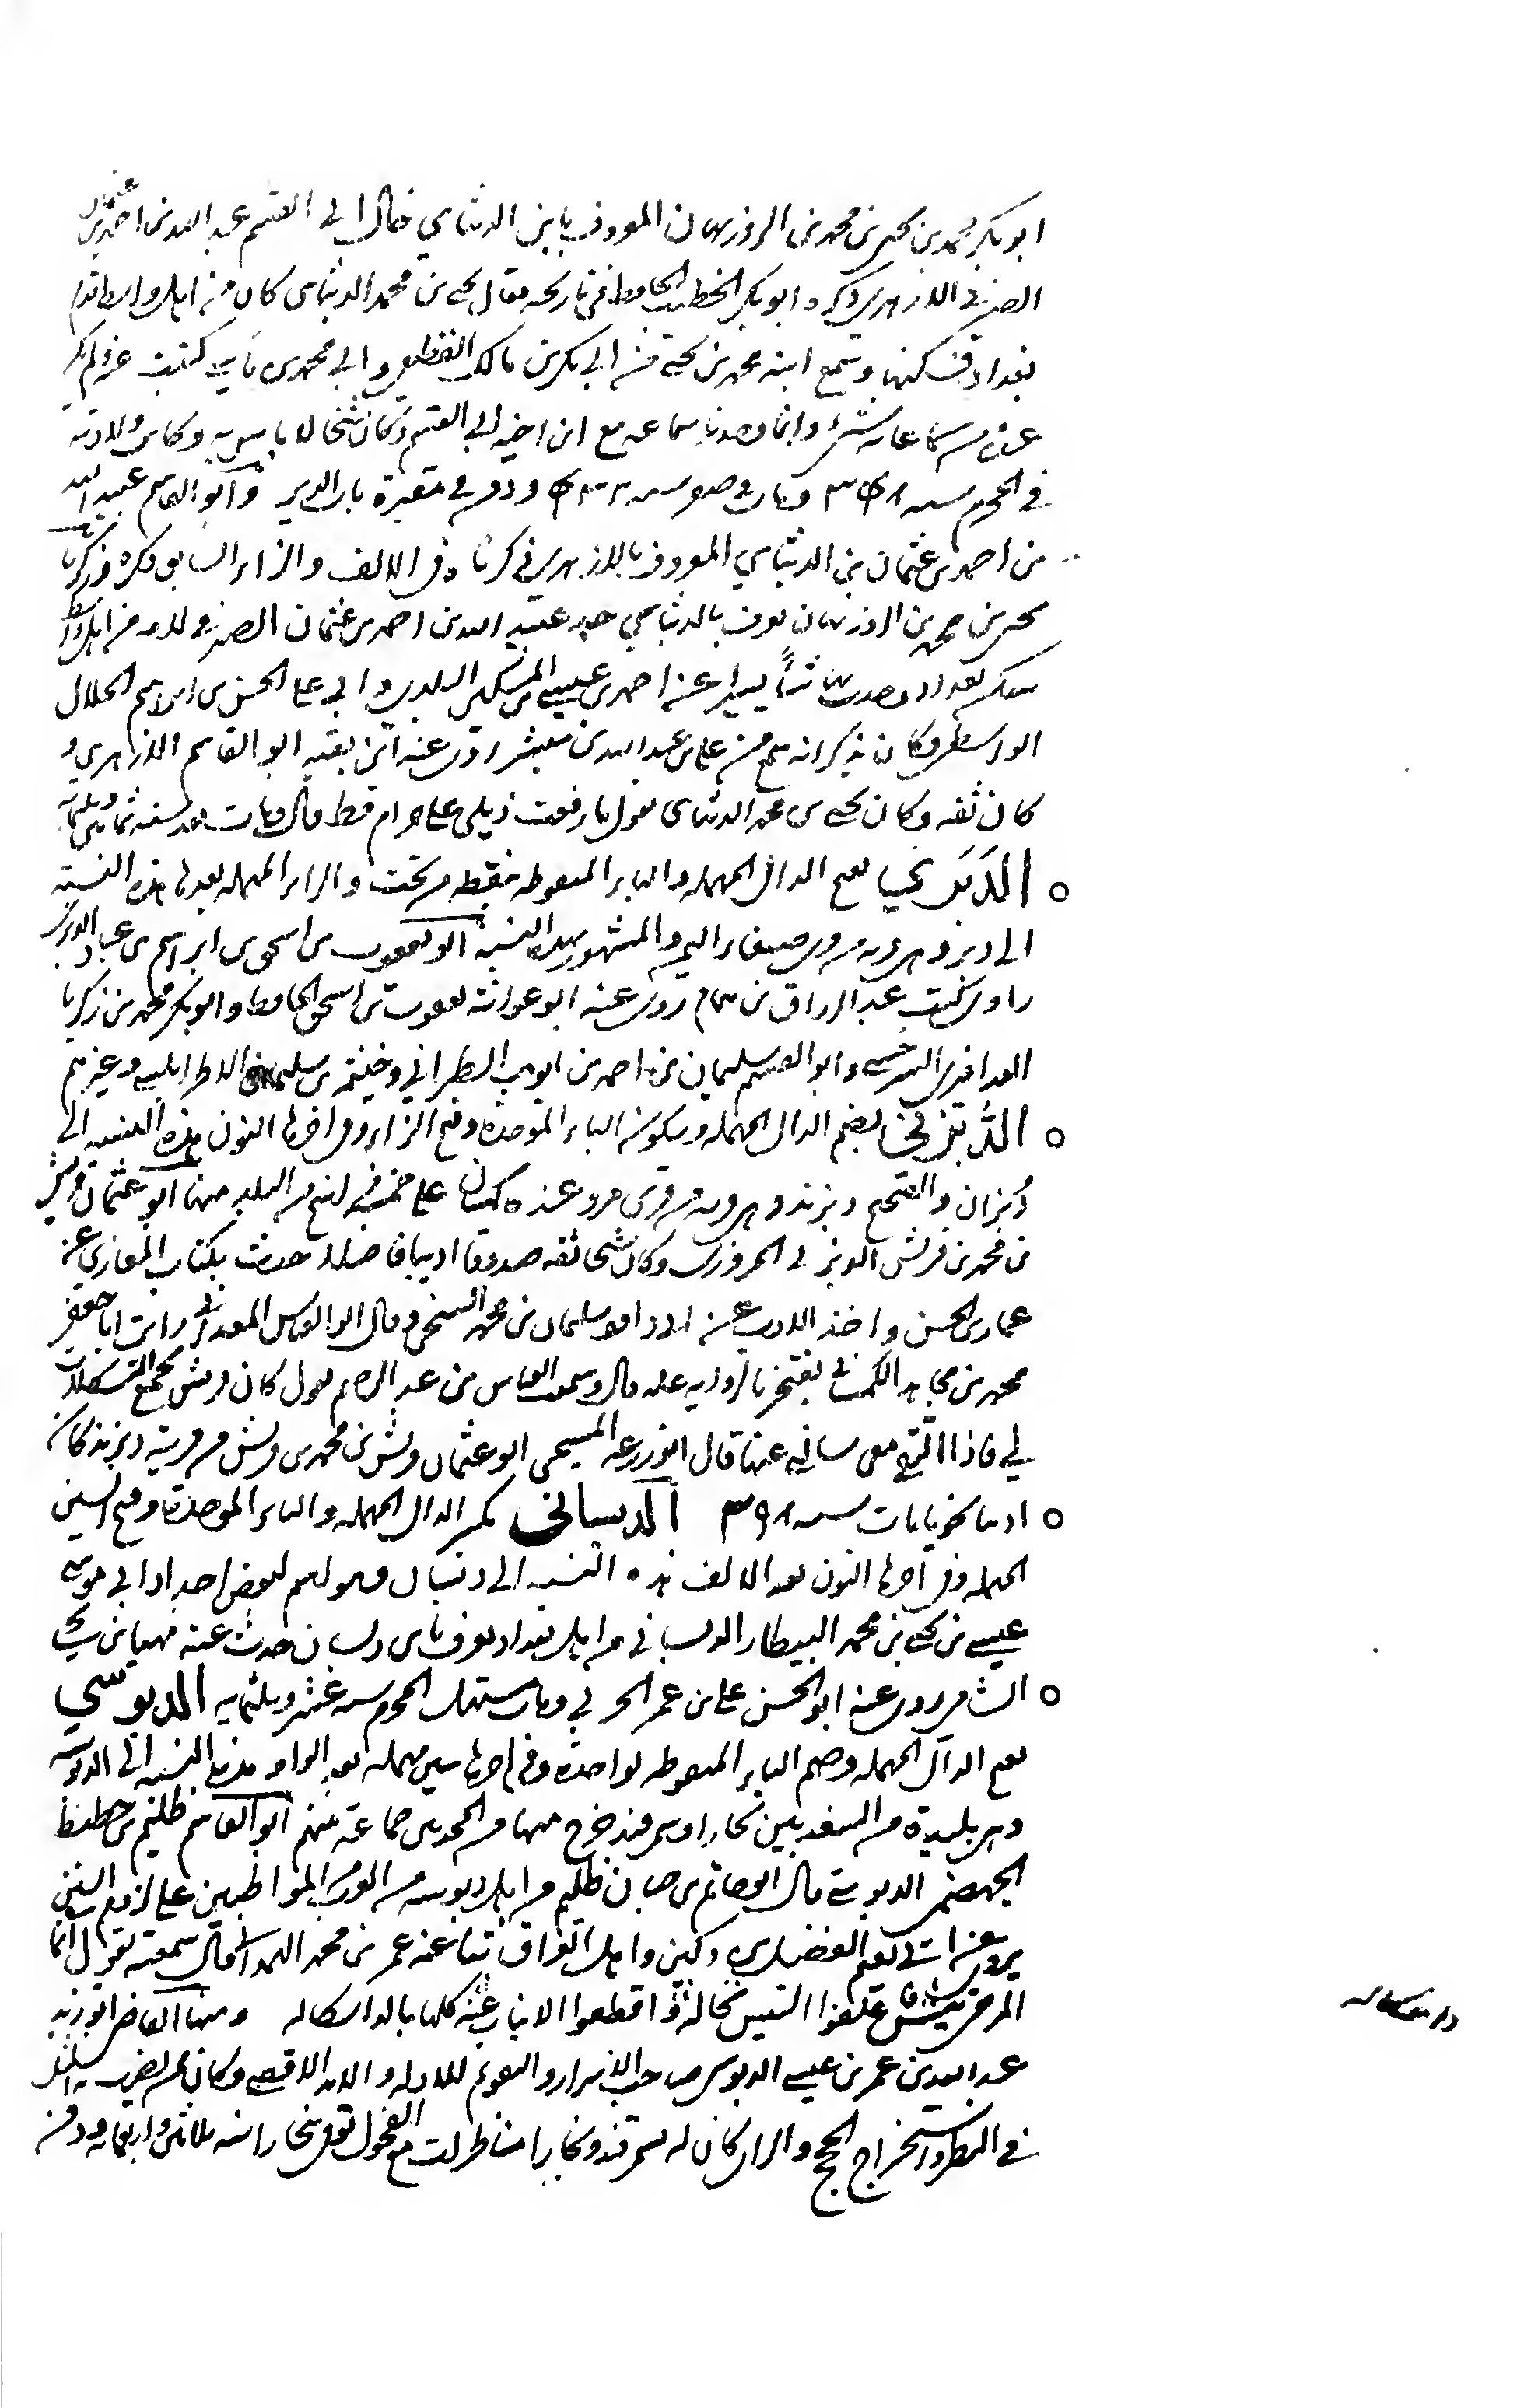 ابو بكر محمد بن يحيى بن محمد بن الروزبهان المعروف بابن الدبثاي خال ابى القسم عبيد الله بن احمد بن عثمان
الصيرفي الازهري ذكره ابو بكر الخطيب الحافظ في تاريخه فقال يحيى بن محمد الدبثاى كان من اهل واسط قدم
بغداد فسكنها وسمع ابنه محمد بن يحيى من ابي بكر بن مالك القطيعي وابي محمد بن ماسي كتبت عنه ولم يكن
عنده من سماعاته شىء وانما وجدنا سماعه مع ابن اخيه ابي القسم وكان شيخا لا باس به وكانت ولادته
في المحرم سنه ومات في صفر سنه ودفن في مقبرة باب الدير وابو القاسم عبيد الله
بن احمد بن عثمان بن الدبثاي المعروف بالازهري ذكرنا في الالف والزاء السابق ذكره وزكريا
يحيى بن محمد بن الروزبهان يعرف بالدبثاي جد عبيد الله بن احمد بن عثمان الصيرفي لامه من اهل واسط
سكن بغداد وحدث بها شيأً يسيرا عن احمد بن عيسى بن السكين البلدي وابي علي الحسن بن ابراهيم الخلال
الواسطي وكان يذكر انه سمع من علي بن عبد الله بن مبشر روى عنه ابن بنته ابو القاسم الازهري و
كان ثقه وكان يحيى بن محمد الدبثاى يقول ما رفعت ذيلي على حرام قط قال ومات بعد سنه ثمانين وثلثمائه
الدَبَري بفتح الدال المهمله والباء المنقوطه بنقطه من تحت والراء المهمله بعدها هذه النسبة
الى دبر وهي قريه من قرى صنعاء اليمن والمشهور بهذه النسبة ابو يعقوب بن اسحق بن ابراهيم بن عباد الدبري
راوى كتب عبد الرزاق بن همام روى عنه ابو عوانة يعقوب بن اسحق الحافظ وابو بكر محمد بن زكريا
العذافري السرخسي وابو القسم سليمان بن احمد بن ايوب الطبراني وخيثمه بن سليمان الاطرابلسي وغيرهم
الدُّبْزَني بضم الدال المهمله وسكون الباء الموحدة وفتح الزاء وفي اخرها النون هذه النسبه الى
دُبزان والصحيح دبزند وهي قريه من قرى مرو عند كمسان على خمسة فراسخ من البلد منها ابو عثمان قريش
بن محمد بن قريش الدبزني المروزى وكان شيخا ثقه صدوقا اديبا فاضلا حدث بكتاب المغازي عن
عمار بن الحسن واخذ الادب عن ابي داود سليمان بن محمد السنجي قال ابو العباس المعداني رايت ابا جعفر
محمد بن مجاهد الكمساني يفتخر بالرواية عنه قال وسمعت العباس بن عبد الرحيم يقول كان قريش يجمع المشكلات
لي فاذا التقى معى سالني عنها قال ابو زرعه المسيحى ابو عثمان قريش بن محمد بن قريش من قرية دبزند كان
اديبا نحويا مات سنه الدبسانى بكسر الدال المهمله والباء الموحدة وفتح السين
المهمله وفي اخرها النون بعد الالف هذه النسبه الى دبسان وهو اسم لبعض اجداد ابي موسى
عيسى بن يحيى بن محمد البيطار الدبساني من اهل بغداد يعرف بابن دبسان حدث عنه مهنا بن يحيى
الشامي روى عنه ابو الحسن علي بن عمر الحربي ومات مستهل المحرم سنه عشر وثلثمايه الدبوسي
بفتح الدال المهمله وضم الباء المنقوطه بواحدة وفي اخرها سين مهمله بعد الواو هذه النسبه الى الدبوسيه
وهي بليدة من السغد بين بخارا وسمرقند خرج منها من المحدثين جماعة منهم ابو القاسم ظليم بن حطيط
الجهضمي الدبوسي قال ابو حاتم بن حبان ظليم من اهل دبوسه من المواظبين على لزوم السنن
يروي عن ابي نعيم الفضل بن دكين واهل العراق ثنا عنه عمر بن محمد الهمداني قال سمعته يقول
ومنها القاضي ابو زيد
عبد الله بن عمر بن عيسى الدبوسي صاحب الاسرار والتقويم للادله والامد الاقصى وكان ممن يضرب به المثل
في النظر واستخراج الحجج والراى كان له بسمرقند وبخارا مناظرات مع الفحول توفي ببخارا سنه ثلاثين واربعمايه ودفن